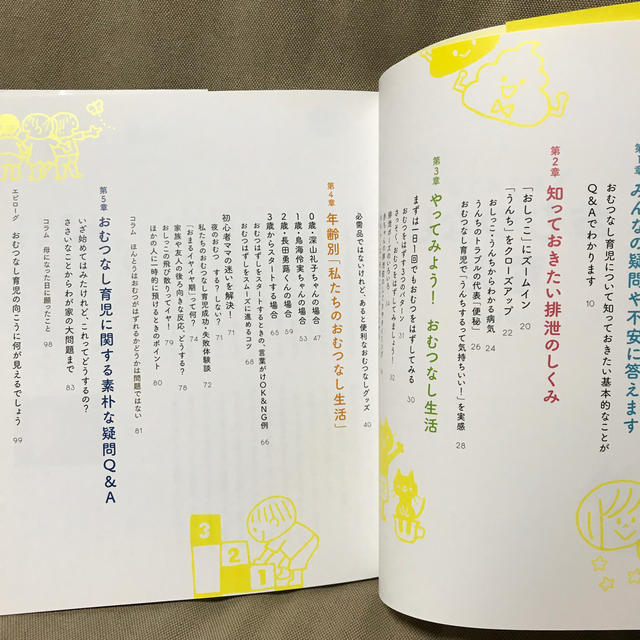 第1章
みんなの疑問や不安に答えます
おむつなし育児について知っておきたい基本的なことが
Q&Aでわかります 10
第2章
知っておきたい排泄のしくみ
「おしっこ」にズームイン 20
「うんち」をクローズアップ 22
おしっこ・うんちからわかる病気 24
うんちのトラブルの代表「便秘」 26
おむつなし育児で「うんちするって気持ちいい!」を実感 28
第3章
やってみよう! おむつなし生活
まずは一日1回でもおむつをはずしてみる 30
おむつをはずす3つのパターン 31
さっそく、おむつをはずしてみましょう! 32
排泄ポーズのいろいろ
必需品ではないけれど、あると便利なおむつなしグッズ 40
第4章
年齢別「私たちのおむつなし生活」
0歳・深山礼子ちゃんの場合 47
1歳・鳥海伶実ちゃんの場合 53
2歳・長田勇蕗くんの場合 59
3歳からスタートする場合 65
おむつはずしをスタートするときの、言葉がけOK&NG例 66
おむつはずしをスムーズに進めるコツ 68
初心者ママの迷いを解決! 71
夜のおむつ する?しない? 71
私たちのおむつなし育児成功・失敗体験談 72
「おまるイヤイヤ期」って何? 74
家族や友人の後ろ向きな反応、どうする? 78
おしっこの飛び散りってイヤ!
ほかの人に一時的に預けるときのポイント 80
コラム ほんとうはおむつがはずれるかどうかは問題ではない 81
第5章
おむつなし育児に関する素朴な疑問Q&A
いざ始めてはみたけれど、これってどうするの?
ささいなことからわが家の大問題まで 83
コラム 母になった日に願ったこと 98
エピローグ
おむつなし育児の向こうに何が見えるでしょう 99
3
2
1